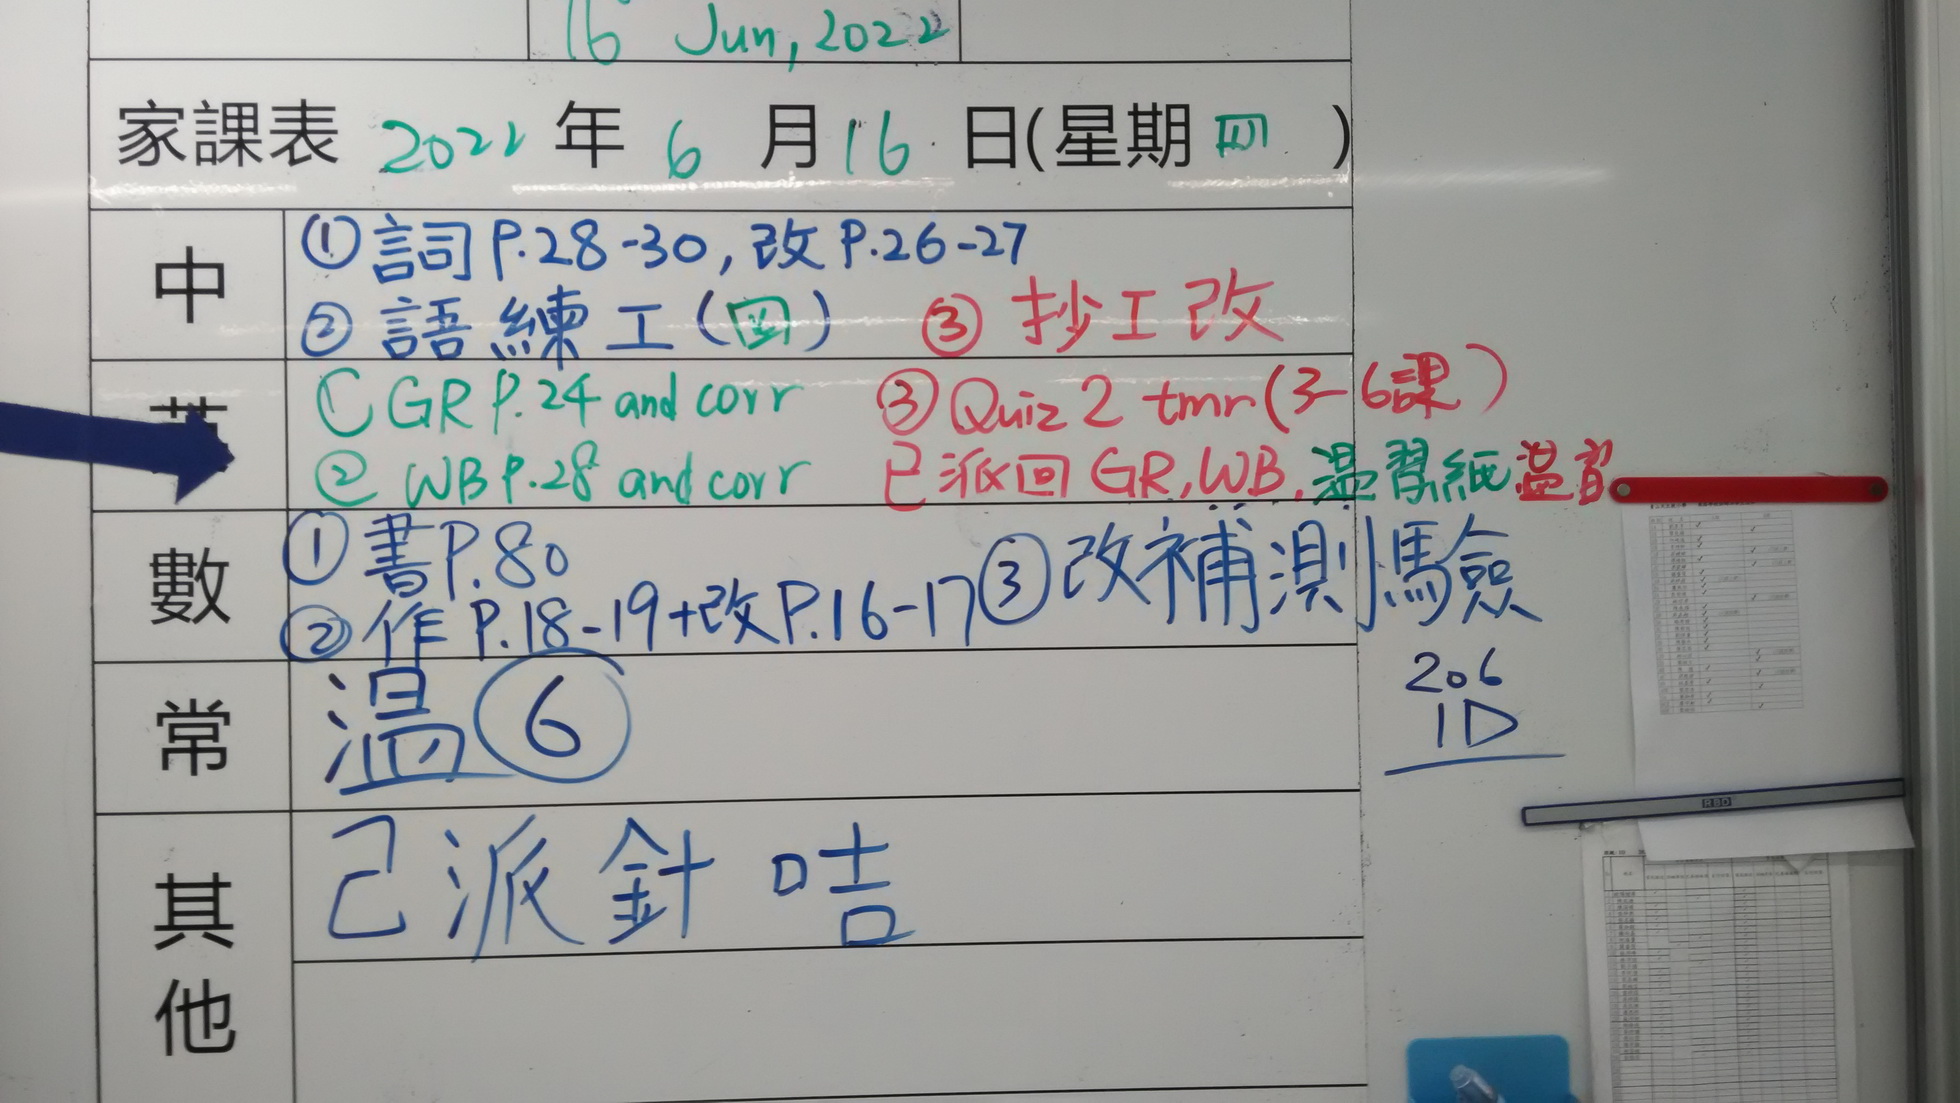 16 Jun, 2022
家課表 2022 年 6 月 16 日(星期 四 )
中
① 詞 P.28-30, 改 P.26-27
② 語練工(四) ③ 抄工改
英
① GR P.24 and corr ③ Quiz 2 tmr (3-6課)
② WB P.28 and corr 已派回 GR, WB, 温習紙温習
數
① 書P.80
② 作 P.18-19+改P.16-17 ③ 改補測馬險
206
1D
常
温⑥
其他
己派針咭
RBD